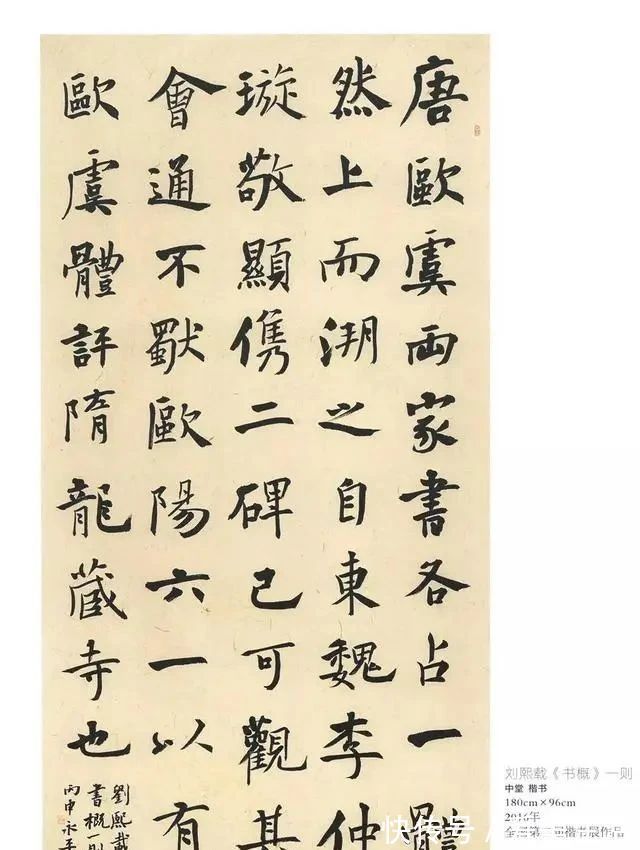 唐歐虞兩家書各占一體
然上而溯之自東魏李仲
璇敬顯儁二碑已可觀其
會通不獨歐陽六一以有
歐虞體評隋龍藏寺也
劉熙載
書概一則
丙申永平
刘熙载《书概》一则
中堂 楷书
180cm×96cm
2016年
楷书展作品
快传号